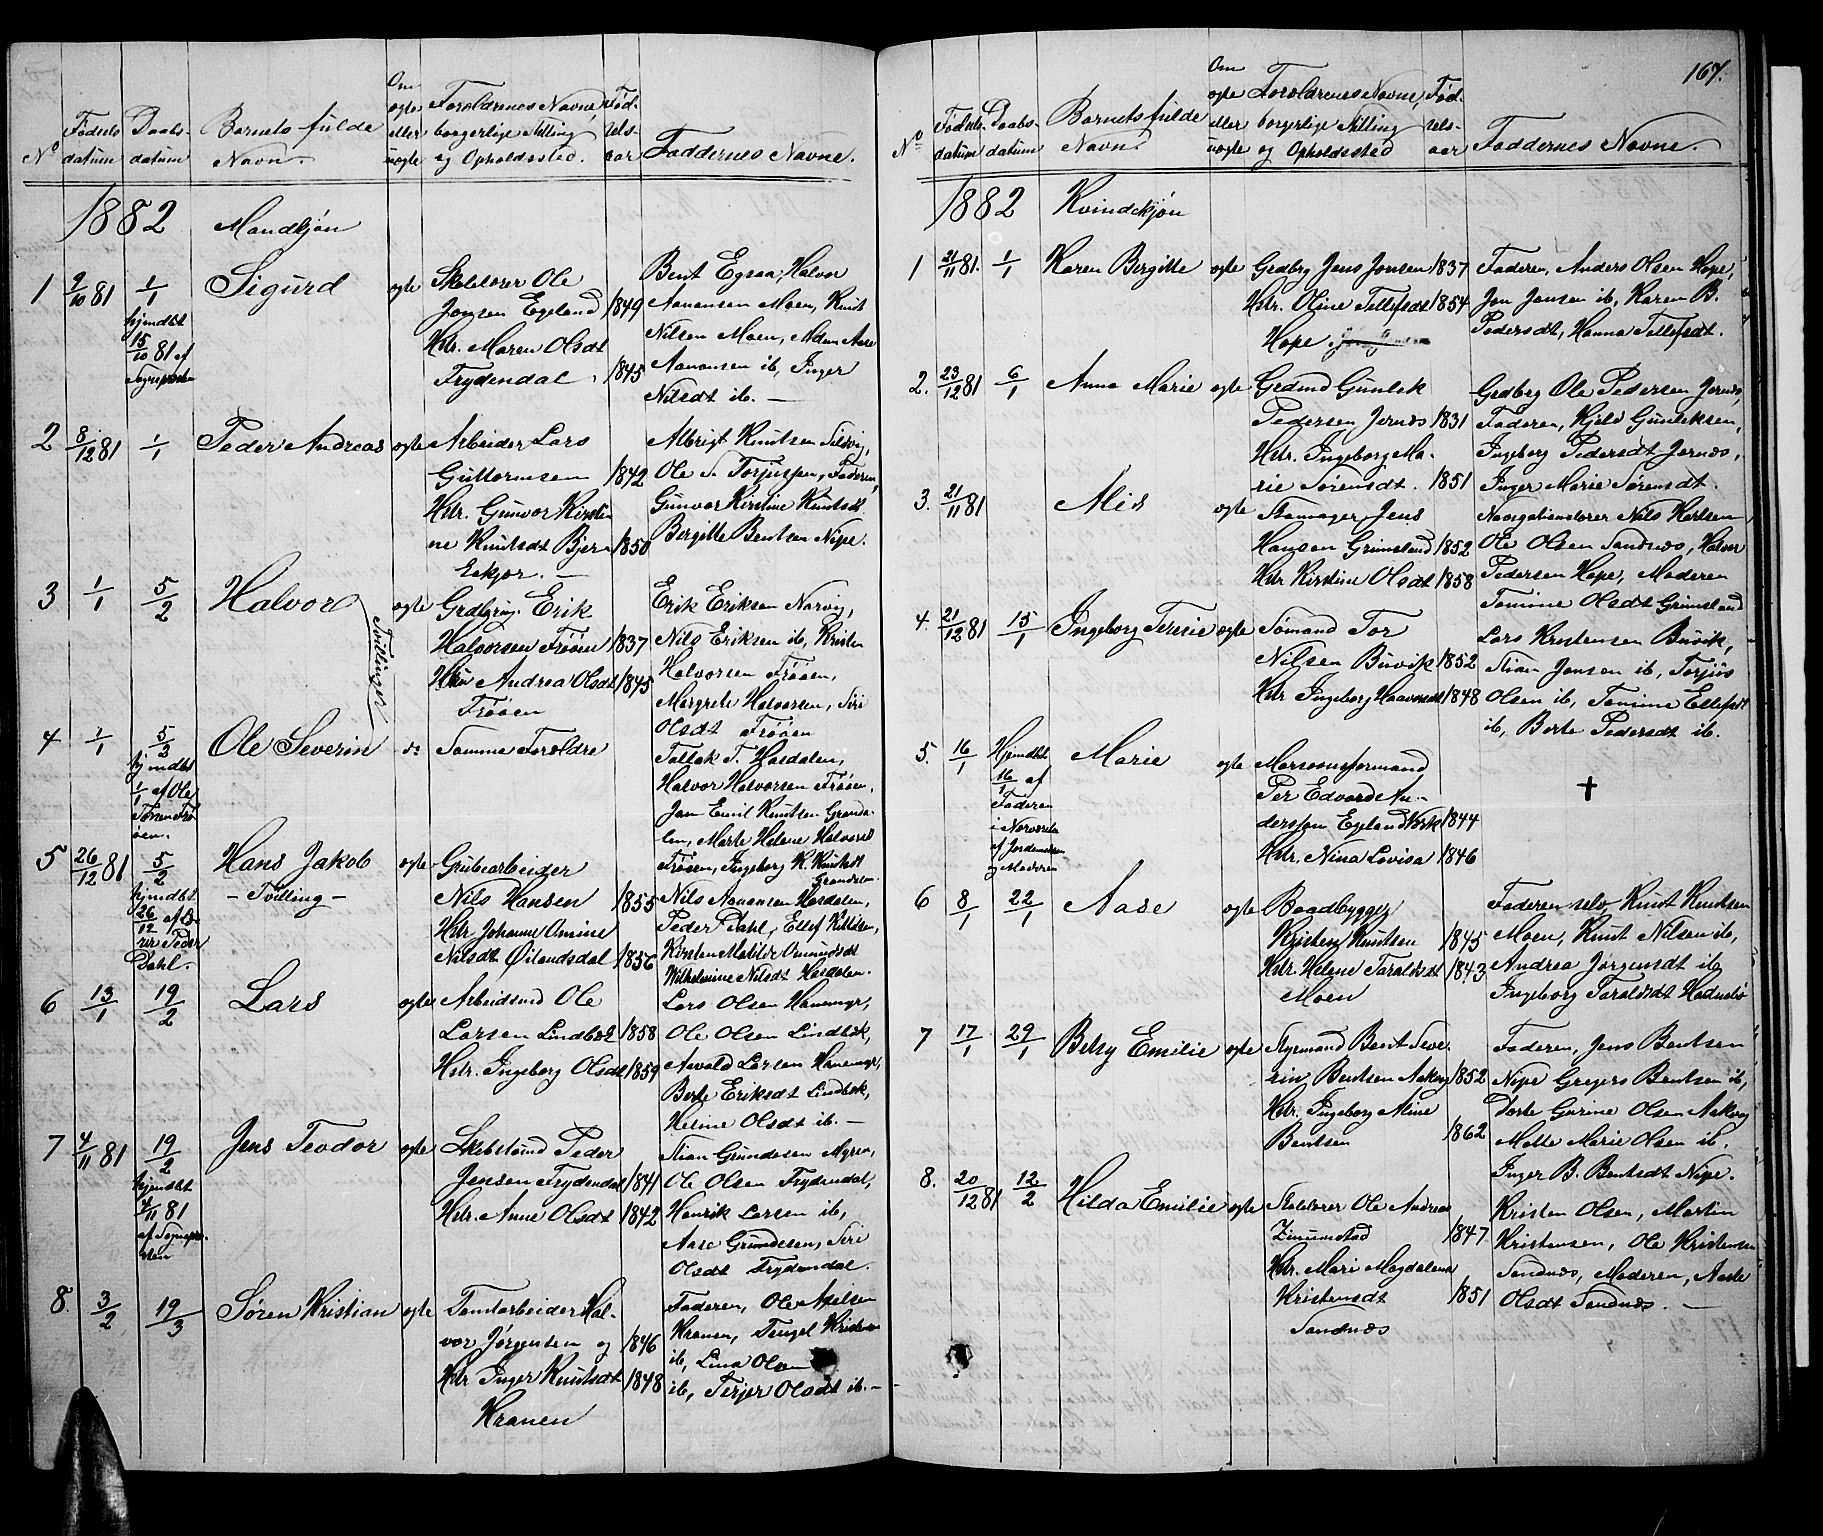 No
Fødsels
datum
Daabs-
datum
Barnets fulde
Navn.
Om
ægte
eller
uægte
Forældrenes Navne,
borgerlige Stilling
og Opholdssted.
Fød-
sels-
aar
Faddernes Navne.
1882 Mandkjøn
1 9/10 81 1/1 Sigurd ægte
hjemdøbt
15/10 81 af
Sognepresten
Skolelærer Ole
Jensen Egeland 1849
Hstr. Maren Olsdt
Frydendal 1845
Bent Egraa, Halvor
Aanonsen Moen, Knut
Nilsen Moen, Aase
Aanonsen ib, Inger
Nilsdt ib.
2 8/12 81 1/1 Peder Andreas ægte
Arbeider Lars
Guttormsen 1842
Hstr. Gunvor Kirsti-
ne Knutsdt Bjor- 1850
Albrigt Knutsen
Ole T. Torjussen, Faderen,
Gunvor Kirstine Knutsdt
Bergitte Bentsen Nipe.
3 1/1 5/2 Halvor ægte
Tvillinger
Grdbrug. Erik
Halvorsen Frøen 1837
Hstr Andrea Olsdt 1845
Frøen
Erik Eriksen Narvig,
Nils Eriksen ib, Kristen
Halvorsen Frøen,
Margrete Halvorsen, Siri
Olsdt Frøen
4 1/1 5/2 Ole Severin do Samme Forældre
hjemdøbt
1/1 af Ole
Tallak T. Hasdalen,
Halvor Halvorsen Frøen,
Jan Emil Knutsen Grenda-
len, Marte Helene Halvorsdt
Frøen, Ingeborg K. Knutsdt
Grendalen
5 26/12 81 5/2 Hans Jakob ægte
- Tvilling -
hjemdøbt
26/12 af Læ-
rer Peder
Dahl.
Grubearbeider
Nils Hansen 1855
Hstr Johanne Amine
Nilsdt Øilandsdal 1856
Nils Aanonsen Hasdalen,
Peder Dahl, Ellef Kittilsen,
Kirsten Matilde Omundsdt
Wilhelmine Nilsdt Hasdalen.
6 13/1 19/2 Lars ægte
Arbeidsmd Ole
Larsen Lindbæk 1858
Hstr. Ingeborg Olsdt 1859
Lars Olsen Hanemyr,
Ole Olsen Lindbæk,
Aavald Larsen Hanemyr,
Berte Eriksdt Lindbæk,
Helene Olsdt ib. -
7 4/11 81 19/2 Jens Teodor ægte
hjemdøbt
9/11 81
af Sognepre-
sten
Peder
Jensen Frydendal 1841
Hstr. Anne Olsdt 1842
Stian Gundesen Myren,
Ole Olsen Frydendal,
Henrik Larsen ib,
Aase Gundesen, Siri
Olsdt Frydendal.
8. 3/2 19/3 Søren Kristian ægte
Tomtarbeider Hal-
vor Jørgensen og 1846
Hstr Inger Knutsdt 1848
Kranen
Faderen, Ole Axelsen
Kranen, Tengel Kristensen
ib, Lina Olsen
ib, Terjer Olsdt ib. -
167.
No
Fødsels-
datum
Daabs-
datum
Barnets fulde
Navn.
Om
ægte
eller
uægte
Forældrenes Navne,
borgerlige Stilling
og Opholdssted
Fød-
sels-
aar
Faddernes Navne.
1882 Kvindekjøn
1 21/11 81. 1/1 Karen Bergitte ægte
Grdbrg Jens Jensen 1837
Hstr. Oline Tellefsdt 1854
Hope
Faderen, Anders Olsen Hope,
Jon Jansen ib, Karen B.
Pedersdt, Hanna Tellefsdt.
2. 23/12 81 6/1 Anna Marie ægte
Grdmd Gunlek
Pedersen Jernæs 1831
Hstr. Ingeborg Ma-
rie Sørensdt. 1851
Grdbrg Ole Pedersen Jernæs,
Faderen, Kjeld Gunleksen,
Ingeborg Pedersdt Jernæs,
Inger Marie Sørensdt.
3. 21/11 81 Alis ægte
Jens
Hansen Grimsland 1852
Hstr Kirstine Olsdt 1858
Navigationslærer Nils Karlsen
Ole Olsen Sandnæs, Halvor
Pedersen Hope, Moderen
Tomine Olsdt Grimsland
4. 21/12 81 15/1 Ingeborg Teresie ægte
Sømand Tor
Nilsen Buvik 1852
Hstr Ingeborg Haavorsdt 1848
Lars Kristensen Buvik,
Stian Jensen ib, Torjus
Olsen ib, Tomine Ellefsdt
ib, Berte Pedersdt ib.
5. 16/1 Hjemdøbt Marie ægte
16/1 af
Faderen
i Nærværelse
af Jordemoderen
og Moderen
Marsvinsformand
Per Edvard An-
dersson Egeland Værk 1844
Hstr. Nina Lovisa 1846
†
6 8/1 22/1 Aase ægte
Baadbygger
Kristen Knutsen 1845
Hstr. Helene Taraldsdt 1843
Moen
Faderen selv Knut Knutsen
Moen, Knut Nilsen ib,
Andrea Jørgensdt ib
Ingeborg Taraldsdt
7 17/1 29/1 Betsy Emilie ægte
Styrmand Bent Seve-
rin Bentsen Aakvg 1852
Hstr. Ingeborg Aline
Bentsen 1862
Faderen, Jens Bentsen
Nipe Gregers Bentsen ib,
Dorte Gurine Olsen Aakvg
Malle Marie Olsen ib.
Inger B. Bentsdt Nipe.
8. 20/12 81 12/2 Hilda Emilie ægte
Skolelærer Ole Andreas
1847
Hstr. Mari Magdalena
Kristensdt 1851
Sandnæs
Kristen Olsen, Martin
Kristensen, Ole Kristensen
Sandnæs, Moderen, Aaste
Olsdt Sandnæs. -